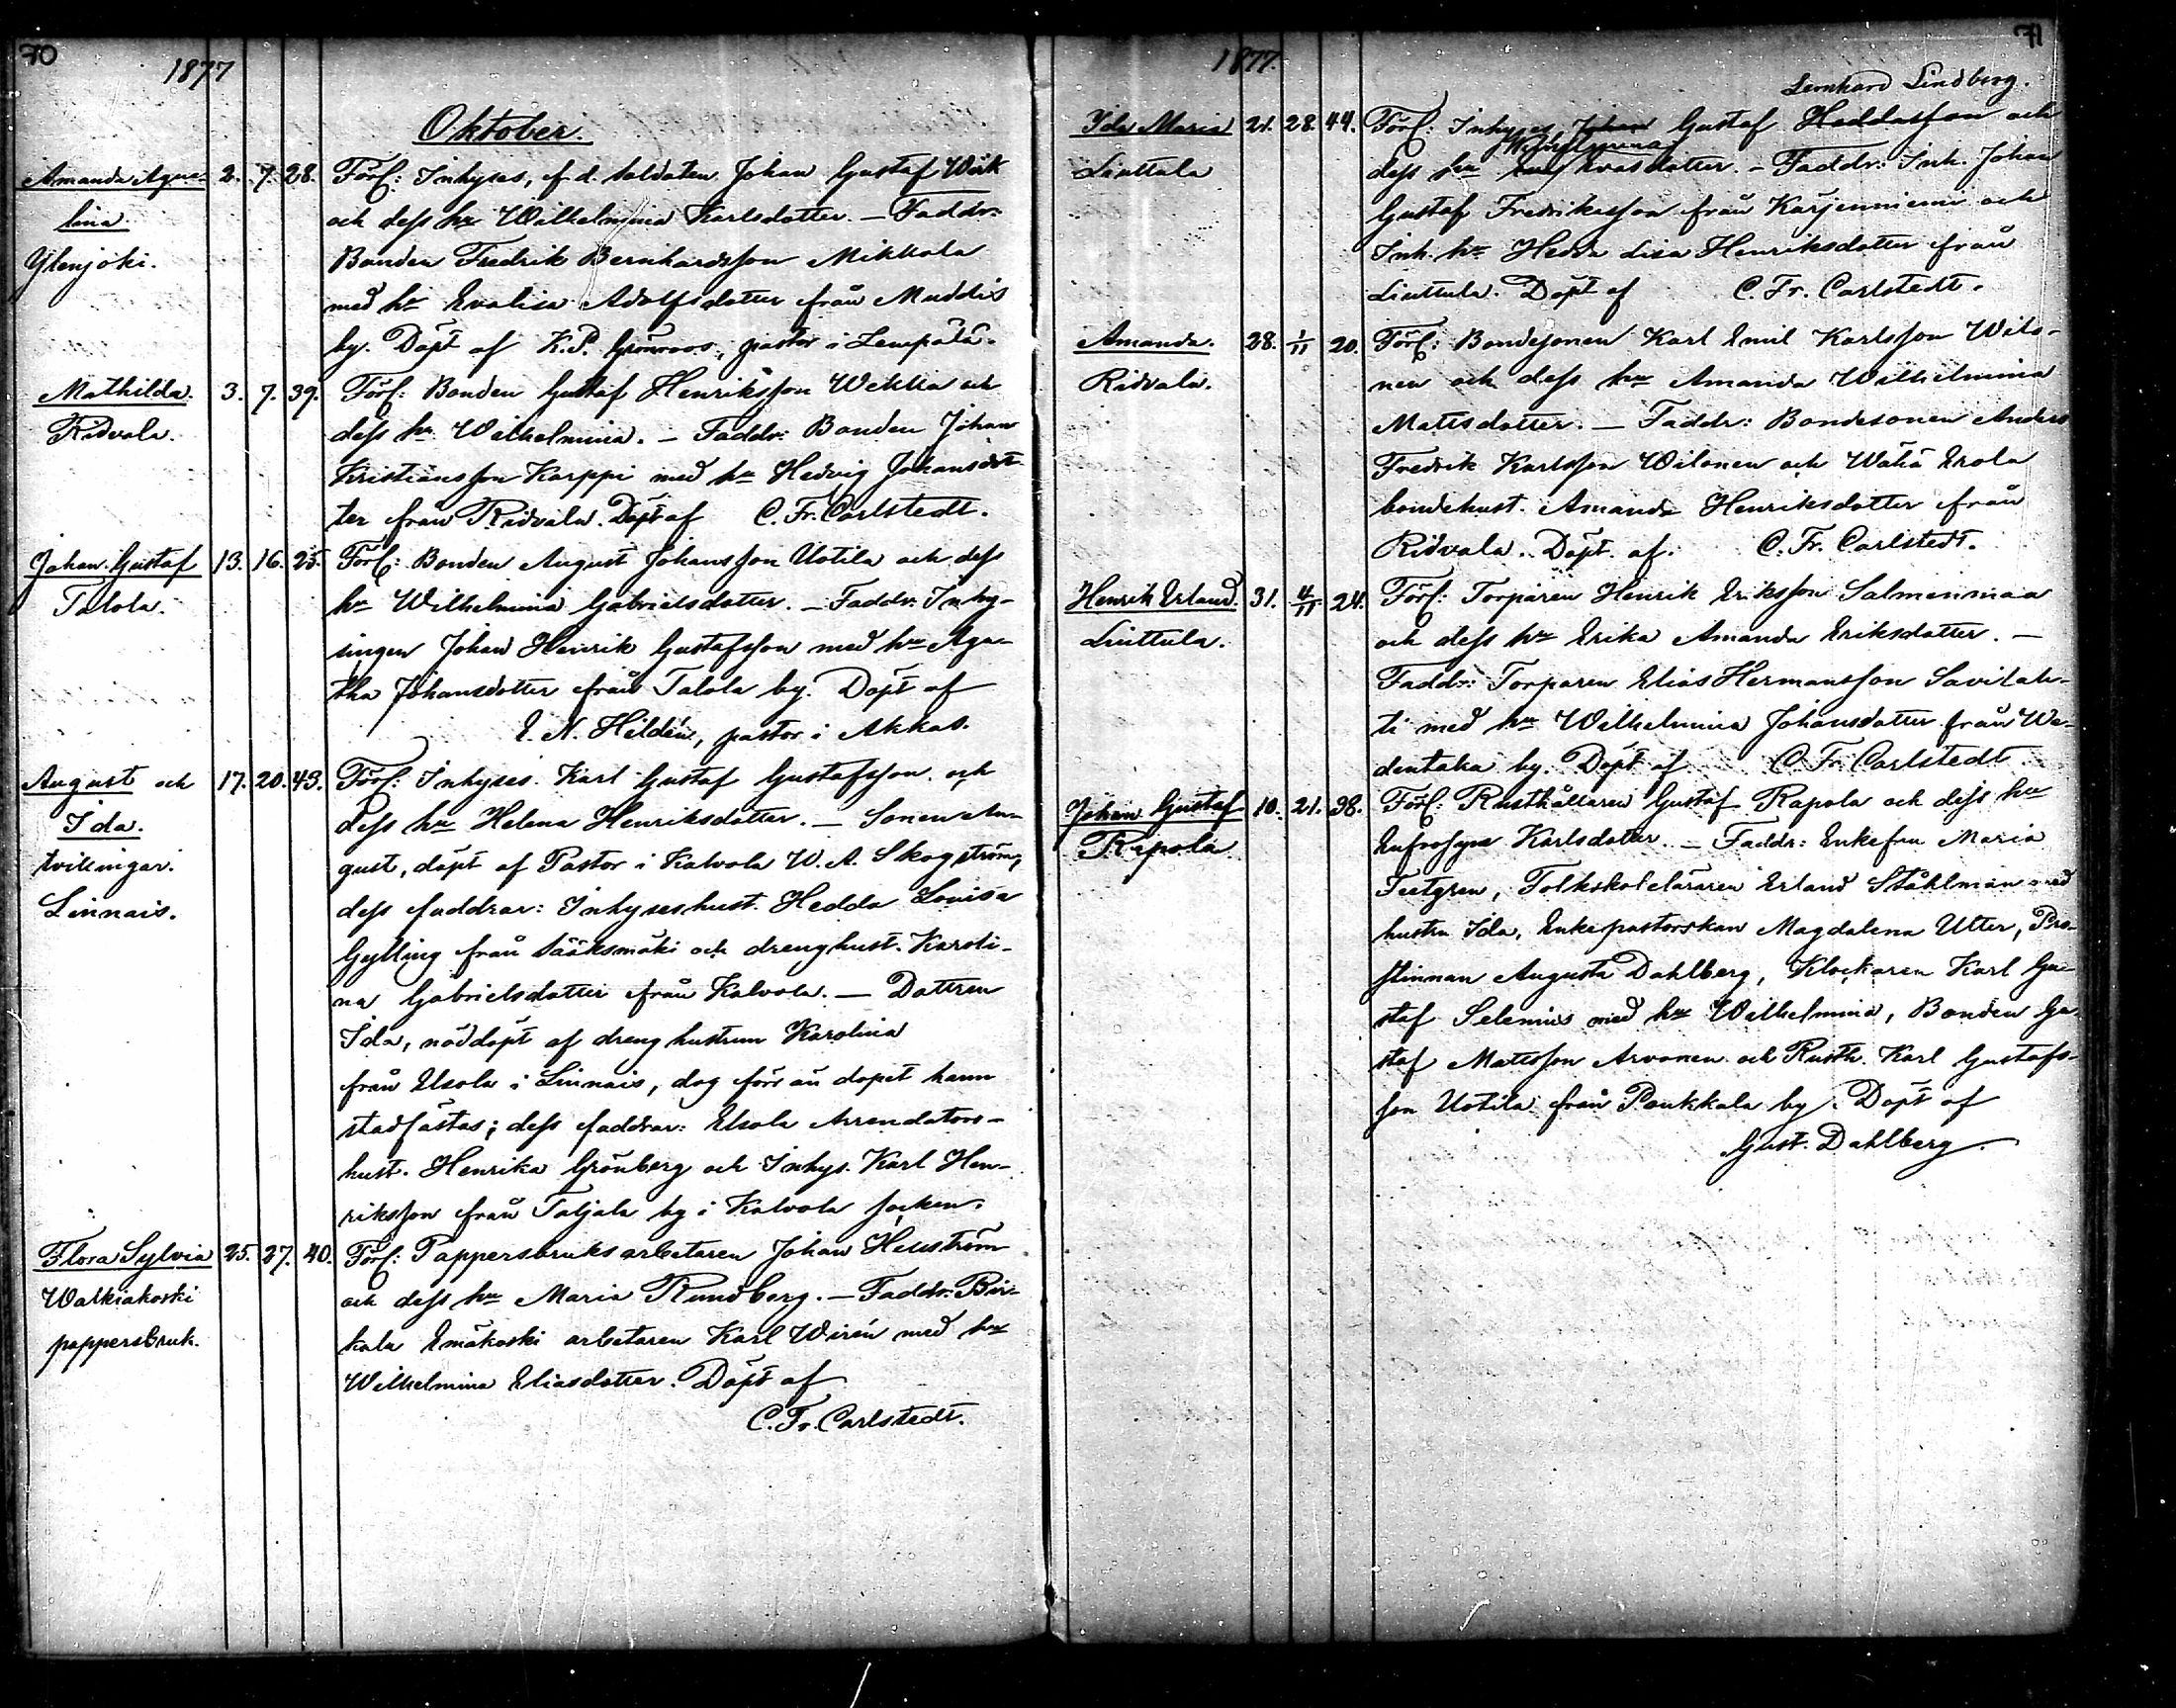 70
1877
Oktober.
Amanda Agne- 2. 7. 28. Förl: Inhyses, f. d. soldaten Johan Gustaf Wik
lina. och dess hu Wilhelmina Karlsdotter. — Faddr:
Ylenjoki. Bonden Fredrik Bernhardsson Mikkola
med hu Evalisa Adolfsdotter från Muddis
by. Döpt af K.P. Grönroos, pastor i Lempälä.
Mathilda. 3. 7. 39. Förl: Bonden Gustaf Henriksson Wekka och
Ridvala. dess hu Wilhelmina. — Faddr: Bonden Johan
Kristiansson Karppi med hu Hedvig Johansdot-
ter från Ridvala. Döpt af C. Fr. Carlstedt.
Johan Gustaf 13. 16. 25. Förl: Bonden August Johansson Uotila och dess
Talola. hu Wilhelmina Gabrielsdotter. — Faddr: Inhy-
singen Johan Henrik Gustafsson med hu Aga-
tha Johansdotter från Talola by. Döpt af
E. N. Hildén, pastor i Akkas.
August och 17. 20. 43. Förl: Inhyses Karl Gustaf Gustafsson och
Ida. dess hu Helena Henriksdotter. — Sonen Au-
tvillingar. gust, döpt af Pastor i Kalvola W. A. Skogström,
Linnais. dess faddrar: Inhyseshust. Hedda Lovisa
Gylling från Sääksmäki och drenghust. Karoli-
na Gabrielsdotter från Kalvola. — Dottren
Ida, nöddöpt af dreng hustrun Karolina
från Elsola i Linnais, dog förr än dopet hann
stadfästas; dess faddrar: Elsola Arrendators-
hust. Henrika Grönberg och Inhys. Karl Hen-
riksson från Taljala by i Kalvola socken.
Flora Sylvia 25. 27. 40. Förl: Pappersbruksarbetaren Johan Hellström
Walkiakoski och dess hu Maria Rundberg. — Faddr: Bir-
pappersbruk. kala Emäkoski arbetaren Karl Wirén med hu
Wilhelmina Eliasdotter. Döpt af
C. Fr. Carlstedt.
71
1877.
Lernhard Lindberg.
Ida Maria 21. 28. 44. Förl: Inhyses Johan Gustaf Heddasson och
Wilhelmina
Liuttula dess hu Evasdotter. — Faddr: Inh. Johan
Gustaf Fredriksson från Karjenniemi och
Inh. hu Hedda Lisa Henriksdotter från
Liuttula. Döpt af C. Fr. Carlstedt.
Amanda. 28. 1/11 20. Förl: Bondesonen Karl Emil Karlsson Wilo-
Ridvala. nen och dess hu Amanda Wilhelmina
Mattsdotter. — Faddr: Bondesonen Anders
Fredrik Karlsson Wilonen och Wähä Erola
bondehust. Amanda Henriksdotter från
Ridvala. Döpt af. C. Fr. Carlstedt.
Henrik Erland. 31. 4/11 24. Förl: Torparen Henrik Eriksson Salmenmaa
Liuttula. och dess hu Erika Amanda Eriksdotter. —
Faddr: Torparen Elias Hermansson Savilah-
ti med hu Wilhelmina Johansdotter från We-
dentaka by. Döpt af C. Fr. Carlstedt
Johan Gustaf 10. 21. 38. Förl: Rusthållaren Gustaf Rapola och dess hu
Rapola Eufrosyne Karlsdotter. — Faddr: Enkefru Maria
Feetgren, Folkskoleläraren Erland Ståhlman med
hustru Ida, Enkepastorskan Magdalena Utter, Pro-
stinnan Augusta Dahlberg, Klockaren Karl Gu-
staf Selenius med hu Wilhelmina, Bonden Gu-
staf Mattsson Arvonen och Rusth. Karl Gustafs-
son Uotila från Poukkala by. Döpt af
Gust. Dahlberg